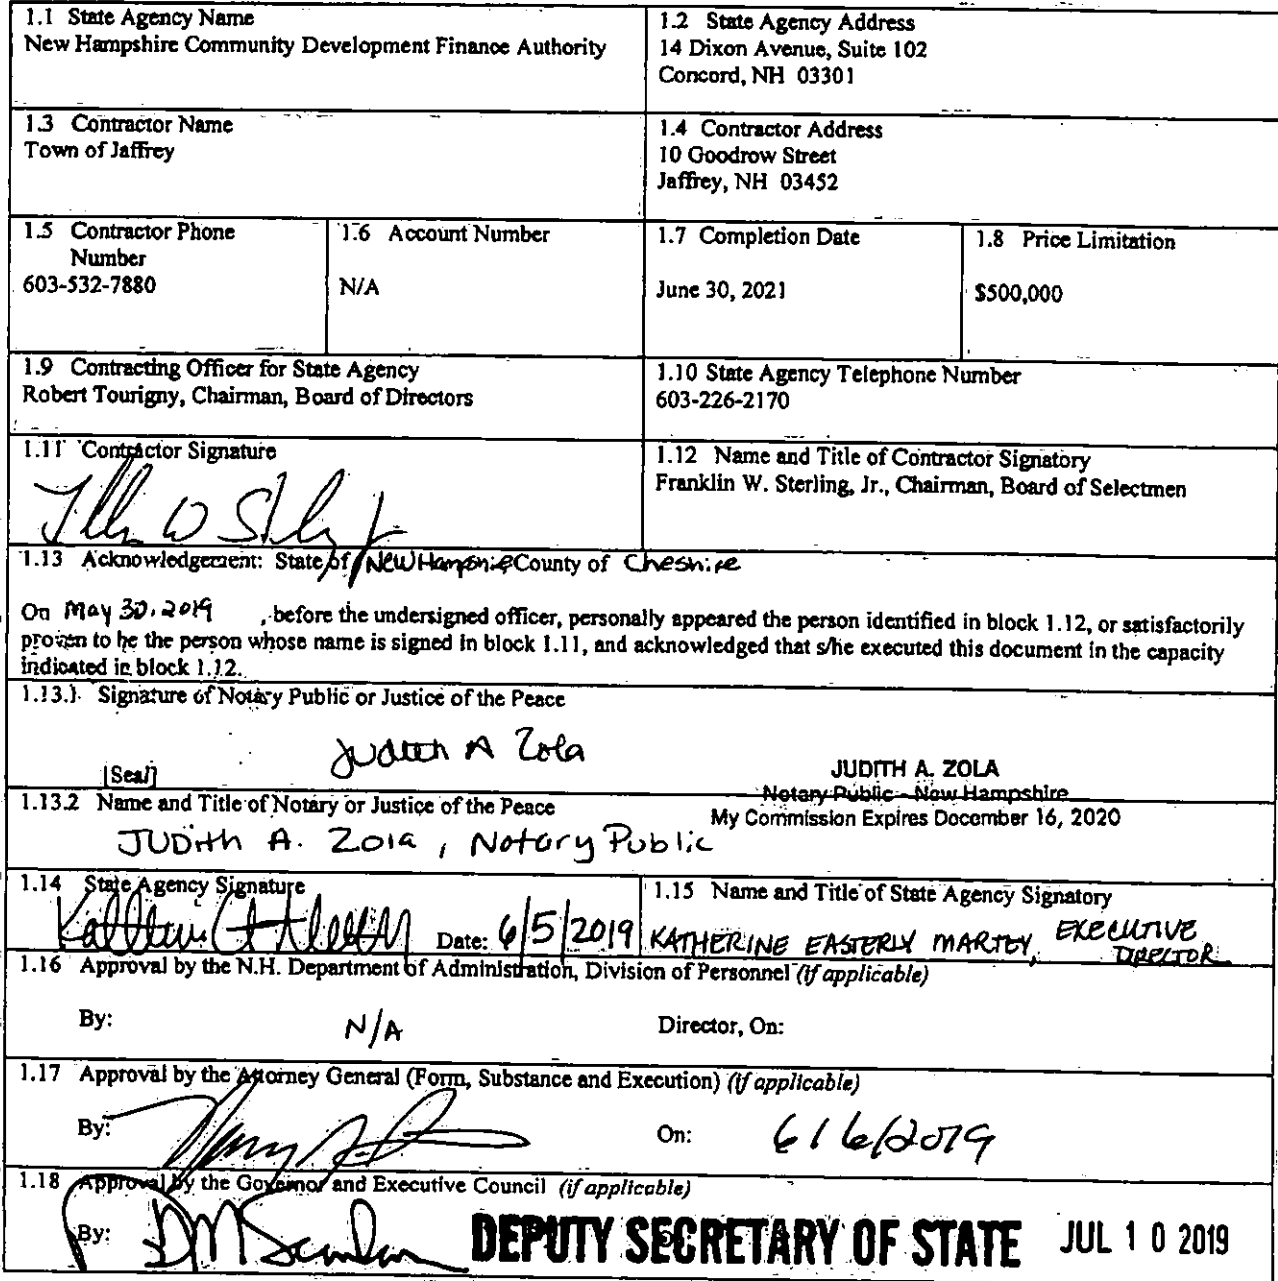 1.1 State Agency Name
New Hampshire Community Development Finance Authority
1.2 State Agency Address
14 Dixon Avenue, Suite 102
Concord, NH 03301
1.3 Contractor Name
Town of Jaffrey
1.4 Contractor Address
10 Goodrow Street
Jaffrey, NH 03452
1.5 Contractor Phone
Number
603-532-7880
1.6 Account Number
N/A
1.7 Completion Date
June 30, 2021
1.8 Price Limitation
$500,000
1.9 Contracting Officer for State Agency
Robert Tourigny, Chairman, Board of Directors
1.10 State Agency Telephone Number
603-226-2170
1.11 Contractor Signature
1.12 Name and Title of Contractor Signatory
Franklin W. Sterling, Jr., Chairman, Board of Selectmen
1.13 Acknowledgement: State of New Hampshire County of Cheshire
On May 30, 2019 , before the undersigned officer, personally appeared the person identified in block 1.12, or satisfactorily
proven to be the person whose name is signed in block 1.11, and acknowledged that s/he executed this document in the capacity
indicated in block 1.12.
1.13.1 Signature of Notary Public or Justice of the Peace
Judith A Zola
[Seal]
JUDITH A. ZOLA
Notary Public - New Hampshire
My Commission Expires December 16, 2020
1.13.2 Name and Title of Notary or Justice of the Peace
JUDith A. Zola, Notary Public
1.14 State Agency Signature
Date: 6/5/2019
1.15 Name and Title of State Agency Signatory
KATHERINE EASTERLY MARTEY, EXECUTIVE
DIRECTOR
1.16 Approval by the N.H. Department of Administration, Division of Personnel (if applicable)
By: N/A Director, On:
1.17 Approval by the Attorney General (Form, Substance and Execution) (if applicable)
By: On: 6/6/2019
1.18 Approval by the Governor and Executive Council (if applicable)
By: DEPUTY SECRETARY OF STATE JUL 10 2019